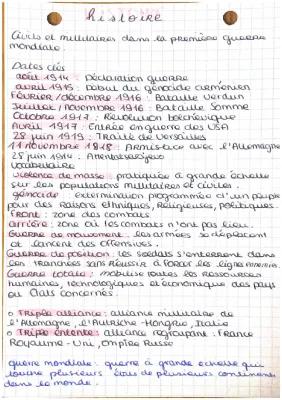 histoire
Civils et militaires dans la première guerre
mondiale.
Dates clés
août 1914 : Déclaration guerre
avril 1915 : Début du génocide arménien
Février / décembre 1916 : Bataille Verdun
Juillet / Novembre 1916 : Bataille Somme
Octobre 1917 : Révolution bolchévique
Avril 1917 : Entrée en guerre des USA
28 juin 1919 : Traité de Versailles
11 novembre 1918 : Armistice avec l'Allemagne
28 juin 1914 :
Vocabulaire
violence de masse : pratiquée à grande échelle
sur les populations militaires et civiles.
génocide : extermination programmée d'un peuple
pour des raisons ethniques, religieuses, politiques.
Front : zone des combats
arrière : zone où les combats n'ont pas lieu.
Guerre de mouvement : les armées se déplacent
et lancent des offensives.
Guerre de position : les soldats s'enterrent dans
les tranchées sans réussir à forcer les lignes
Guerre totale : mobilise toutes les ressources
humaines, technologiques et économiques des pays
ou États concernés.
o Triple alliance : alliance militaire de
l'Allemagne, l'Autriche-Hongrie, Italie
o Triple entente : alliance regroupant : France
Royaume-Uni, Empire Russe
guerre mondiale : guerre à grande échelle qui
touche plusieurs états de plusieurs continents
dans le monde.